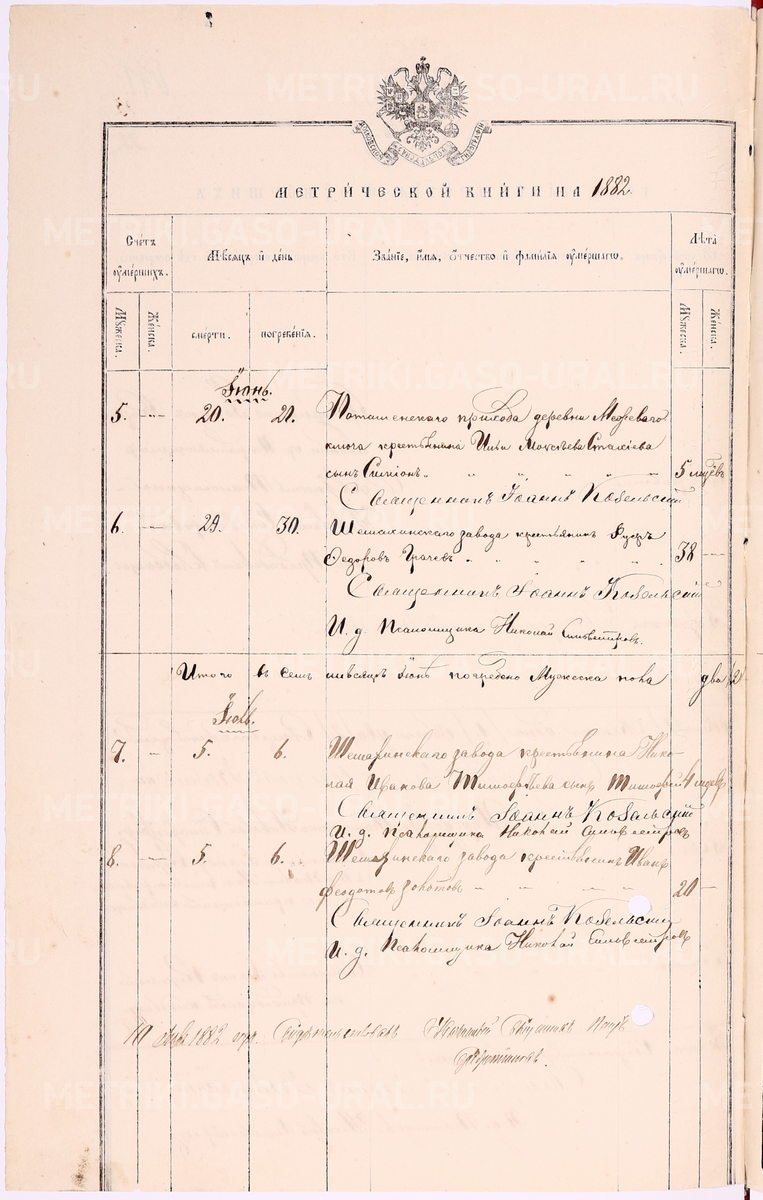 МЕТРИ́ЧЕСКОЙ КНИ́ГИ НА 1882.
Сче́тъ ᲂу҆ме́ршихъ.
Мѣ́сѧцъ и҆ де́нь
Зва́нїе, и҆́мѧ, ѻ҆́тчество и҆ фами́лїѧ ᲂу҆ме́ршагѡ.
Лѣ́та ᲂу҆ме́ршагѡ.
Мꙋ́жеска.
Же́нска.
сме́рти.
погребе́нїѧ.
Мꙋ́жеска.
Же́нска.
Іюнь.
5. 20. 21. Поташенскаго прихода деревни
ключа крестьянина Ильи
сынъ Симеонъ 5 мцевъ
Священникъ Іоаннъ Кобельскій
6. 29. 30. Шемахинскаго завода крестьянинъ
Ѳедоровъ Грачевъ 38
Священникъ Іоаннъ Кобельскій
И. д. Псаломщика Николай Сильвестровъ.
Итого въ семъ мѣсяцѣ Іюнѣ погребено Мужеска пола два (2)
Іюль.
7. 5. 6. Шемахинскаго завода крестьянина Нико-
лая Иванова Тимоѳеева сынъ Тимоѳей 4 мцевъ
Священникъ Іоаннъ Кобельскій
И. д. Псаломщика Николай Сильвестровъ
8. 5. 6. Шемахинскаго завода крестьянинъ Иванъ
Ѳеодотовъ Золотовъ 20
Священникъ Іоаннъ Кобельскій
И. д. Псаломщика Николай Сильвестровъ
1882 года Свидѣтельствовалъ